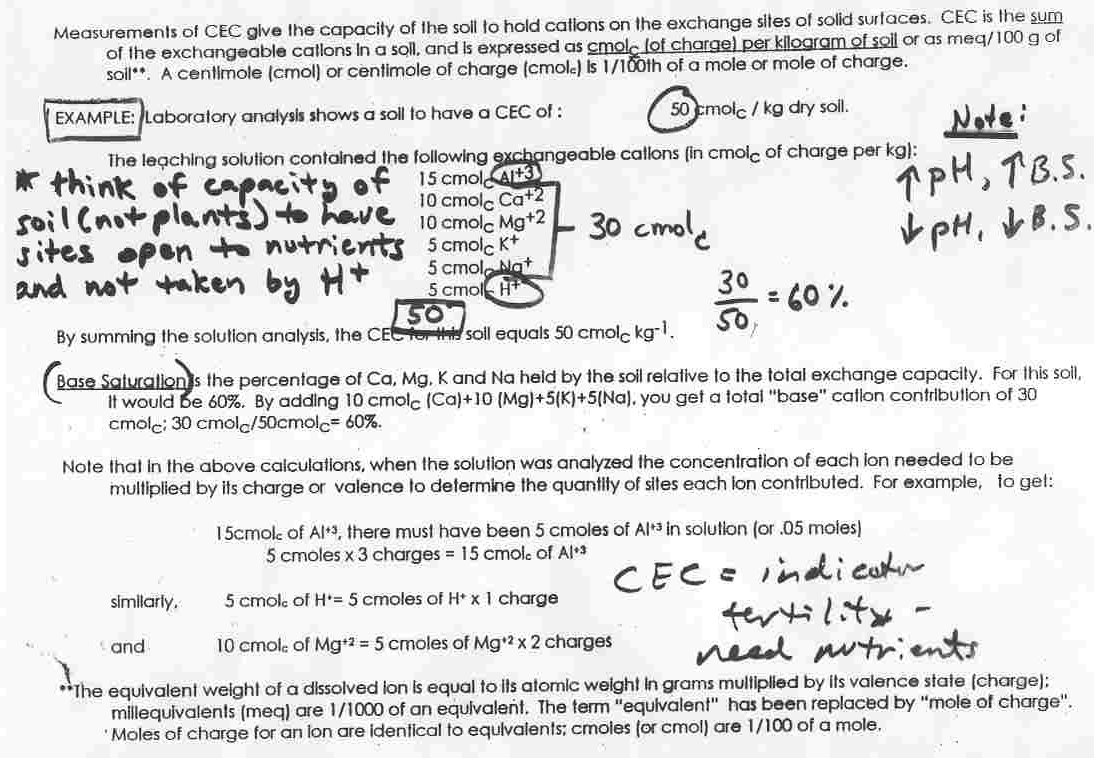 Measurements of CEC give the capacity of the soil to hold cations on the exchange sites of solid surfaces. CEC is the sum
of the exchangeable cations in a soil, and is expressed as cmolc (of charge) per kilogram of soil or as meq/100 g of
soil**. A centimole (cmol) or centimole of charge (cmolc) is 1/100th of a mole or mole of charge.
EXAMPLE: Laboratory analysis shows a soil to have a CEC of : 50 cmolc / kg dry soil.
Note:
↑pH, ↑B.S.
↓pH, ↓B.S.
The leaching solution contained the following exchangeable cations (in cmolc of charge per kg):
* think of capacity of
soil (not plants) to have
sites open to nutrients
and not taken by H+
15 cmolc Al+3
10 cmolc Ca+2
10 cmolc Mg+2
5 cmolc K+
5 cmolc Na+
5 cmolc H+
50
30 cmolc
30/50 = 60%
By summing the solution analysis, the CEC for this soil equals 50 cmolc kg-1.
Base Saturation is the percentage of Ca, Mg, K and Na held by the soil relative to the total exchange capacity. For this soil,
it would be 60%. By adding 10 cmolc (Ca)+10 (Mg)+5(K)+5(Na), you get a total "base" cation contribution of 30
cmolc; 30 cmolc/50cmolc= 60%.
Note that in the above calculations, when the solution was analyzed the concentration of each ion needed to be
multiplied by its charge or valence to determine the quantity of sites each ion contributed. For example, to get:
15cmolc of Al+3, there must have been 5 cmoles of Al+3 in solution (or .05 moles)
5 cmoles x 3 charges = 15 cmolc of Al+3
similarly, 5 cmolc of H+= 5 cmoles of H+ x 1 charge
and 10 cmolc of Mg+2 = 5 cmoles of Mg+2 x 2 charges
CEC = indicator
fertility -
need nutrients
**The equivalent weight of a dissolved ion is equal to its atomic weight in grams multiplied by its valence state (charge);
millequivalents (meq) are 1/1000 of an equivalent. The term "equivalent" has been replaced by "mole of charge".
Moles of charge for an ion are identical to equivalents; cmoles (or cmol) are 1/100 of a mole.